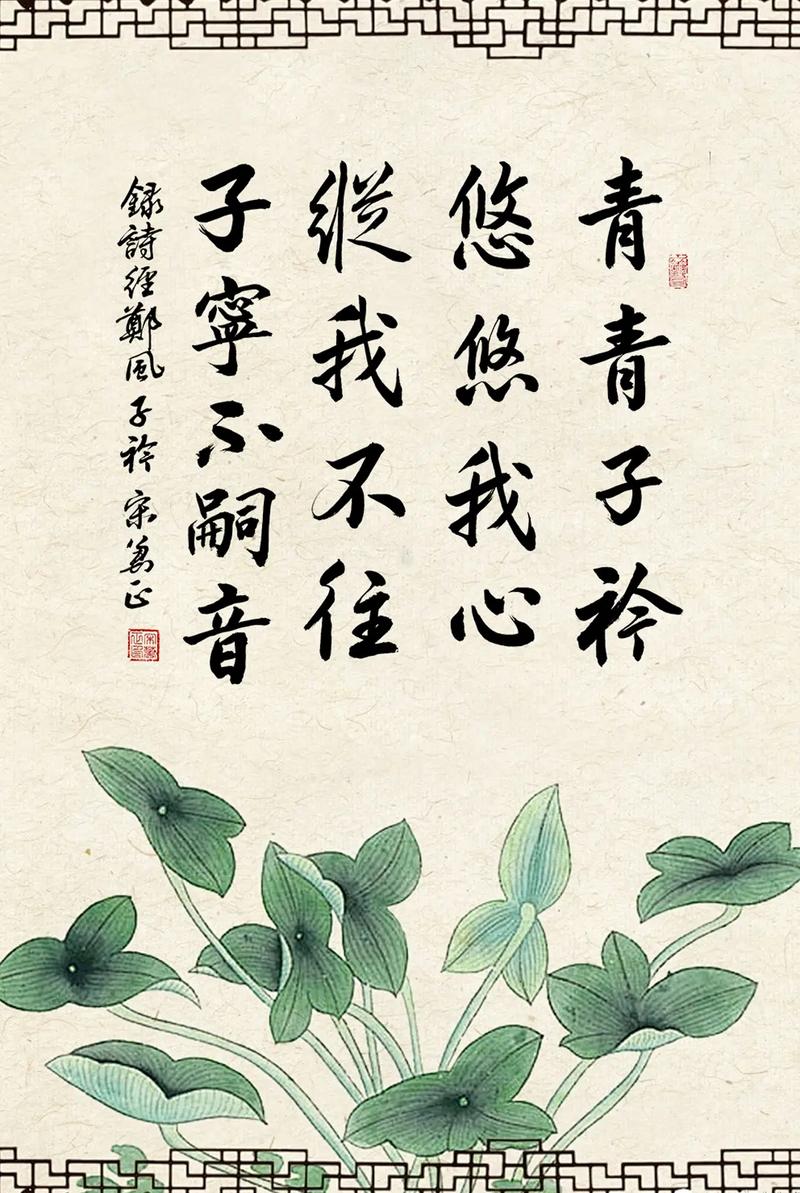 青青子衿
悠悠我心
縱我不往
子寧不嗣音
錄詩經鄭風子衿 宋萬正